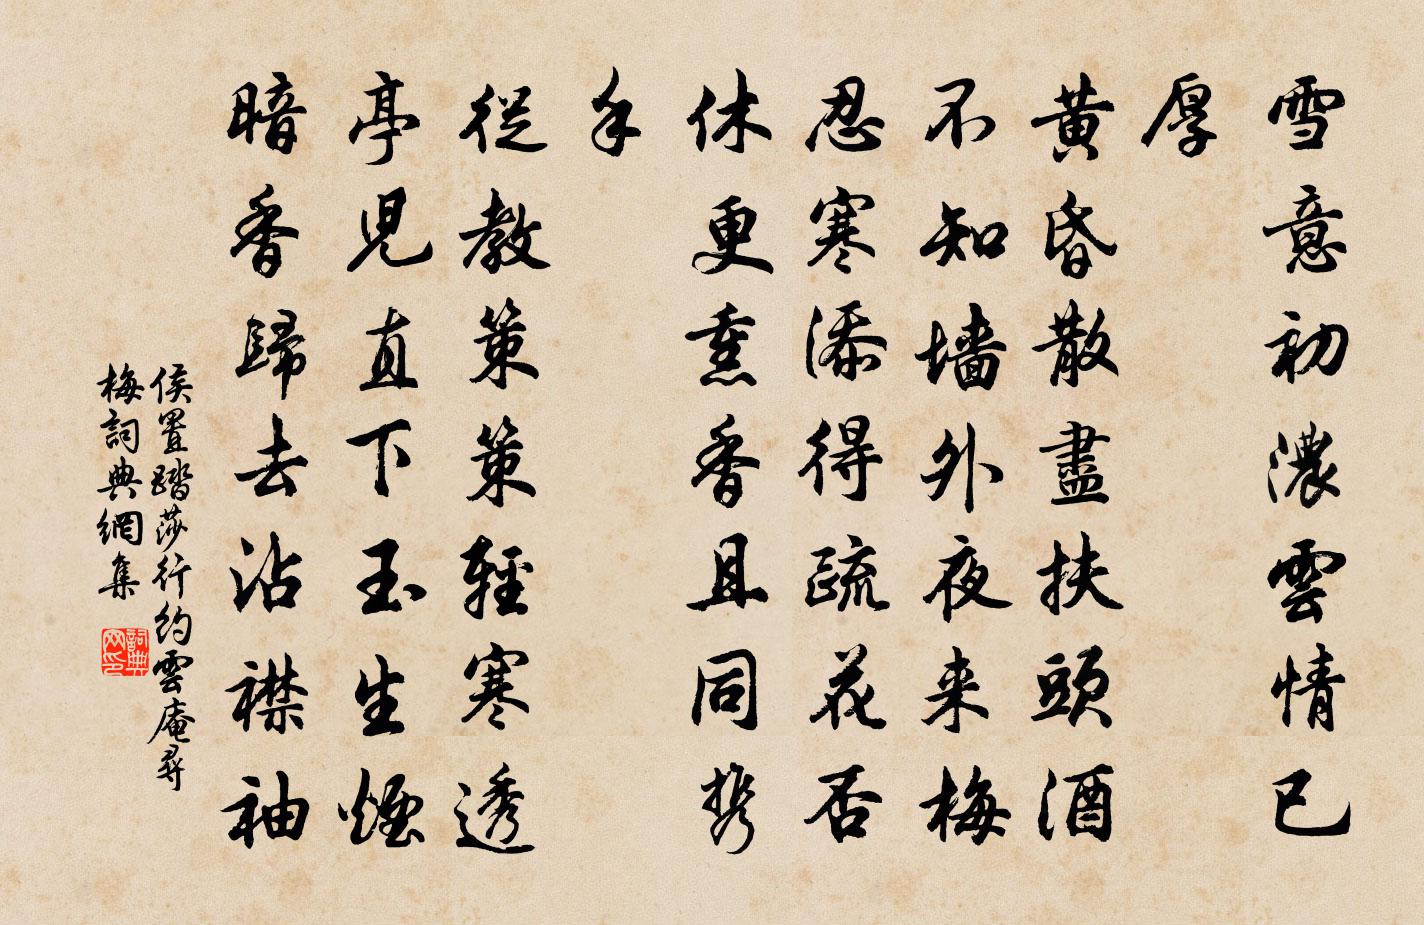 雪意初濃雲情已
厚
黄昏散盡扶頭酒
不知墙外夜来梅
忍寒添得疏花否
休更熏香且同携
手
從教策策輕寒透
亭兒直下玉生煙
暗香歸去沾襟袖
侯置踏莎行約雲庵尋
梅詞典網集
詞典網印